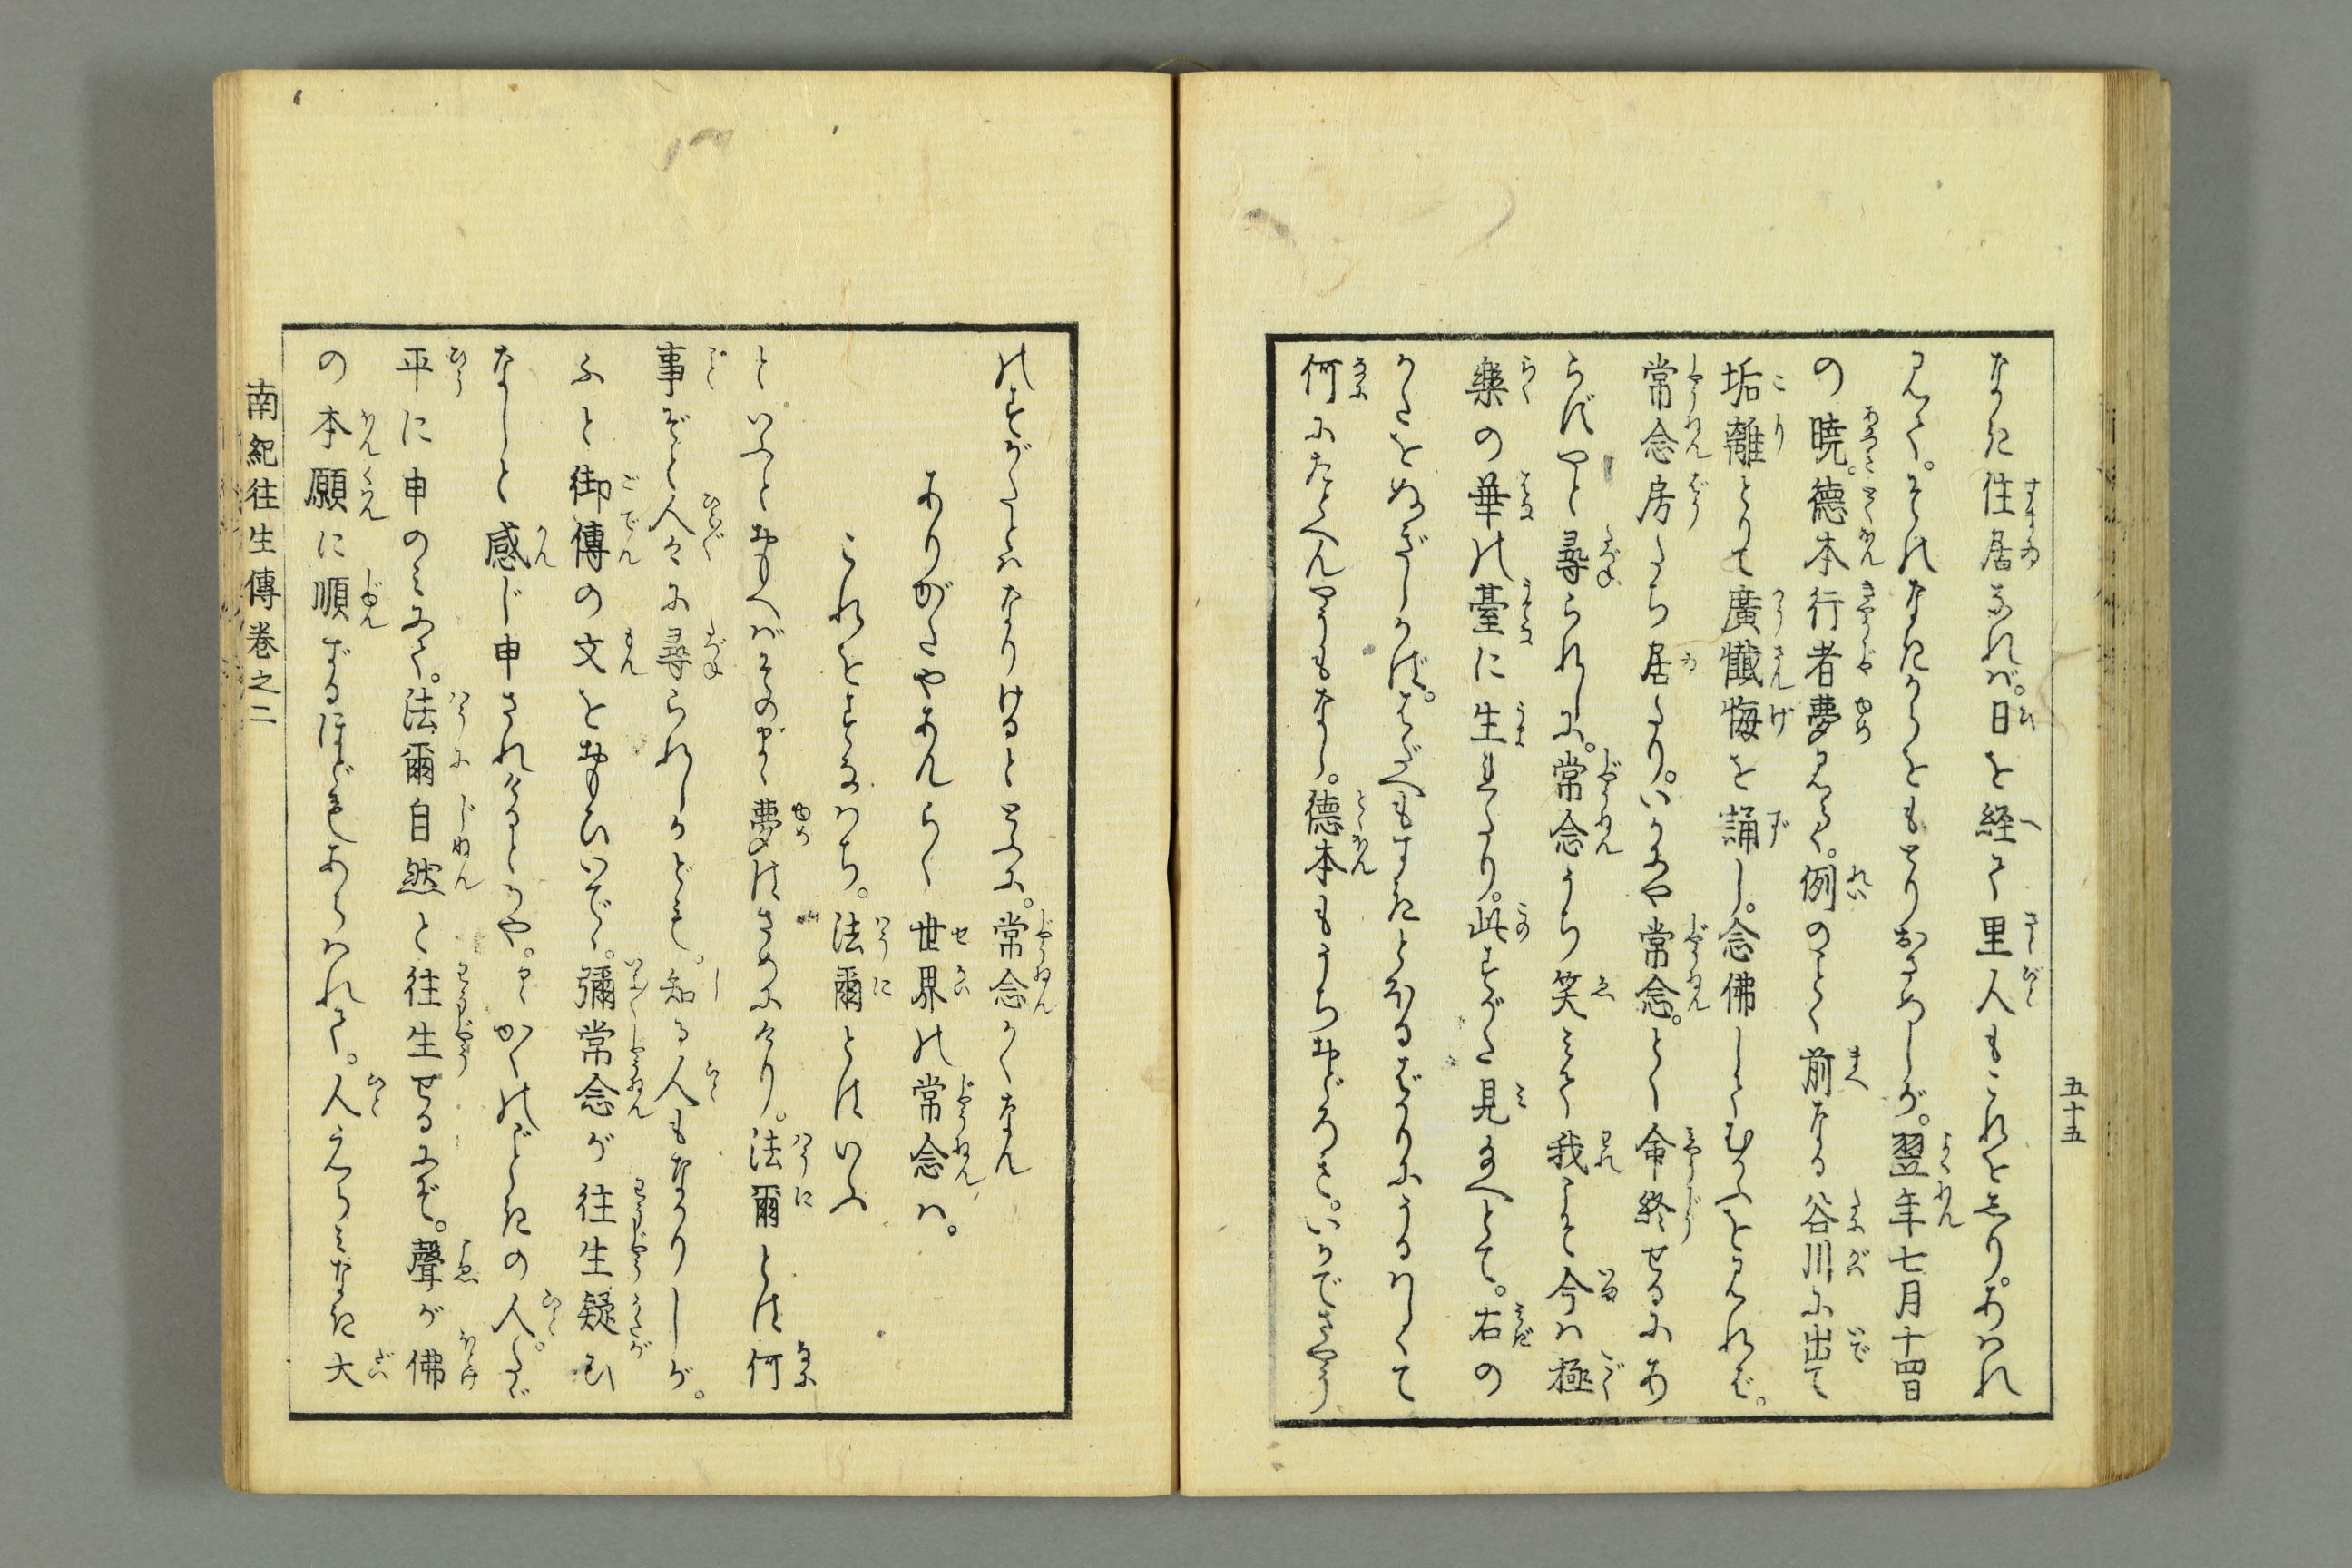 五十五
なき住居なれば。日を経て里人もこれをしり。あはれ
みて。そのなきからをもとりおさめしが。翌年七月十四日
の暁。德本行者夢みらく。例のごとく前なる谷川に出て
垢離とりて廣懺悔を誦し。念佛してむかふをみれば。
常念房たち居たり。いかにや常念。とく命終せるにあ
らずやと尋られしに。常念うち笑みて我こそ今は極
樂の華の臺に生れたり。此すがた見給へとて。右の
かたをぬぎしかば。はだへもすきとほるばかりにうるはしくて
何にたとへんやうもなし。德本もうちおどろき。いかでさやう
のすがたとはなりけるととふに。常念かくなん
ありがたやあんらく世界の常念は。
これをすなはち。法爾とはいふ
といふとおもへばそのまゝ夢はさめにけり。法爾とは何
事ぞと人々に尋られしかども。知る人もなかりしが。
ふと御傳の文をおもひいで。彌常念が往生疑ひ
なしと感じ申されけるとかや。わくかくのごときの人。たゞ
平に申のみにて。法爾自然と往生せるにぞ。聲が佛
の本願に順ずるほどもあらはれて。人えらみなき大
南紀往生傳巻之二